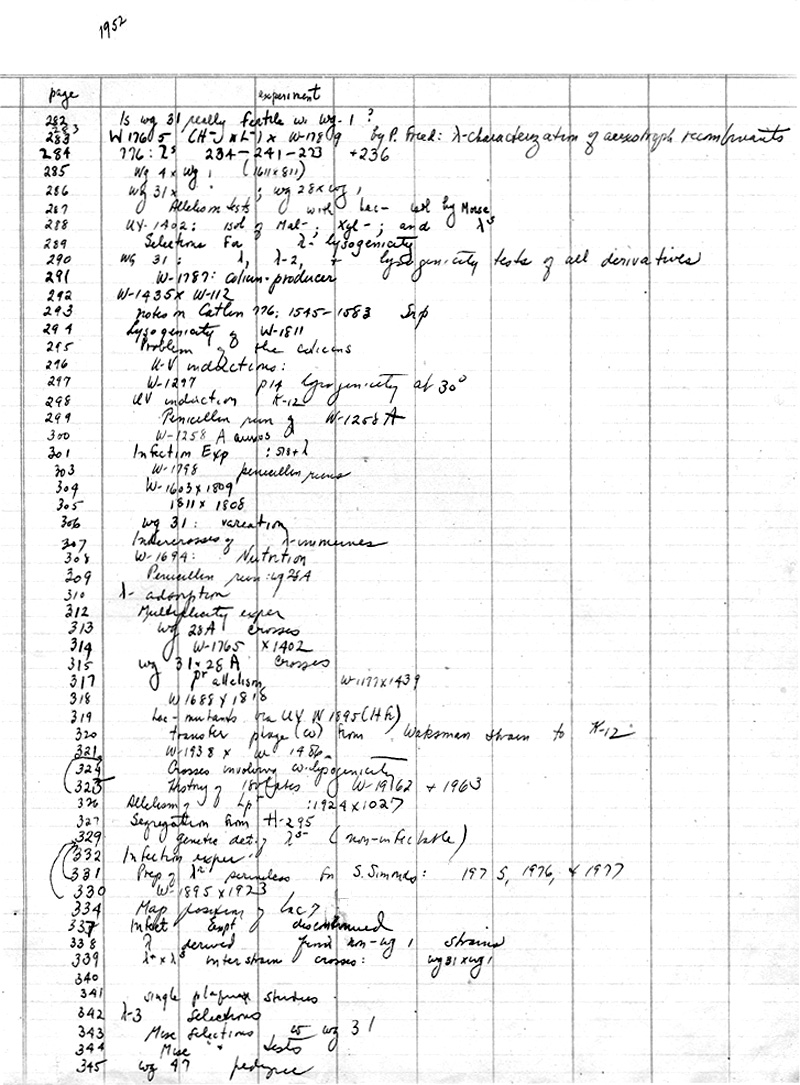 1952
page experiment
282 Is wg 31 really fertile w. wg-1 ?
283 W1765 (H-) x L-) x W-1789 by P. Fried: λ-characterization of auxotroph recombinants
284 776: 234-241-273 +236
285 wg 4 x wg 1 (1611x811)
286 wg 31 x " ; wg 28 x wg 1
287 Allelism tests with Lac- by Morse
288 UV-1402: isol of Mal-; Xyl-; and λs
289 Selections for λ- lysogenicity
290 wg 31: λ, λ-2, + lysogenicity tests of all derivatives
291 W-1787: colicin-producer
292 W-1435 x W-112
293 notes on Catlin 776; 1545-1583
294 Lysogenicity of W-1811
295 Problem of the colicins
296 U-V inductions:
297 W-1297 p14 lysogenicity at 30°
298 UV induction K-12
299 Penicillin run of W-1258A
300 W-1258 A auxos
301 Infection Exp : 518 + λ
303 W-1798 penicillin runs
304 W-1603 x 1809
305 1811 x 1808
306 wg 31: variation
307 Intercrosses of λ-immunes
308 W-1694: Nutrition
309 Penicillin run: wg 28A
310 λ- adsorption
312 Multiplicity exper
313 wg 28A crosses
314 W-1765 x 1402
315 wg 31 x 28A crosses
317 pr allelism W-1177 x 1439
318 W1688 x 1818
319 Lac- mutants via UV W1895 (Hfr)
320 transfer phage (ω) from Waksman strain to K-12
321 W-1938 x W 1486
324 Crosses involving ω-lysogenicity
323 History of isolates W-1962 + 1963
326 Allelism of Lp : 1924 x 1027
327 Segregation from H-295
329 genetic det. of λs (non-infectable)
332 Infection exper.
331 Prep of for S. Simonds: 1975, 1976, + 1977
330 W-1895 x 1923
334 Map position of Lac7
337 Infect Expt discontinued
338 λ derived from non-wg 1 strains
339 λ+ x λs interstrain crosses: wg 31 x wg 1
340
341 single plaque studies
342 λ-3 Selections
343 Misc Selections w wg 31
344 Misc " tests
345 wg 47 pedigree